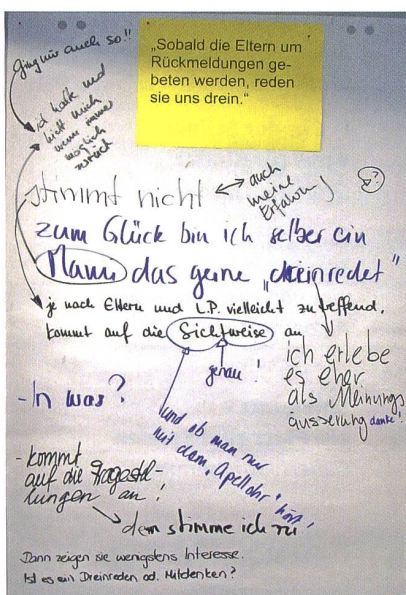 „Sobald die Eltern um
Rückmeldungen ge-
beten werden, reden
sie uns drein.“
Ging mir auch so!!
ich halte und
hielt mich
wenn immer
möglich
zurück
stimmt nicht
auch
meine
Erfahrung
zum Glück bin ich selber ein
Mami das gerne „dreinredet“
je nach Eltern und L.P. vielleicht zutreffend.
kommt auf die Sichtweise an
genau!
ich erlebe
es eher
als Meinungs
äusserung danke!
- In was?
und ob man nur
mit dem „Apellohr“ hört!
- kommt
auf die Fragestel-
lungen an!
dem stimme ich zu
Dann zeigen sie wenigstens Interesse.
Ist es ein Dreinreden od. Mitdenken?